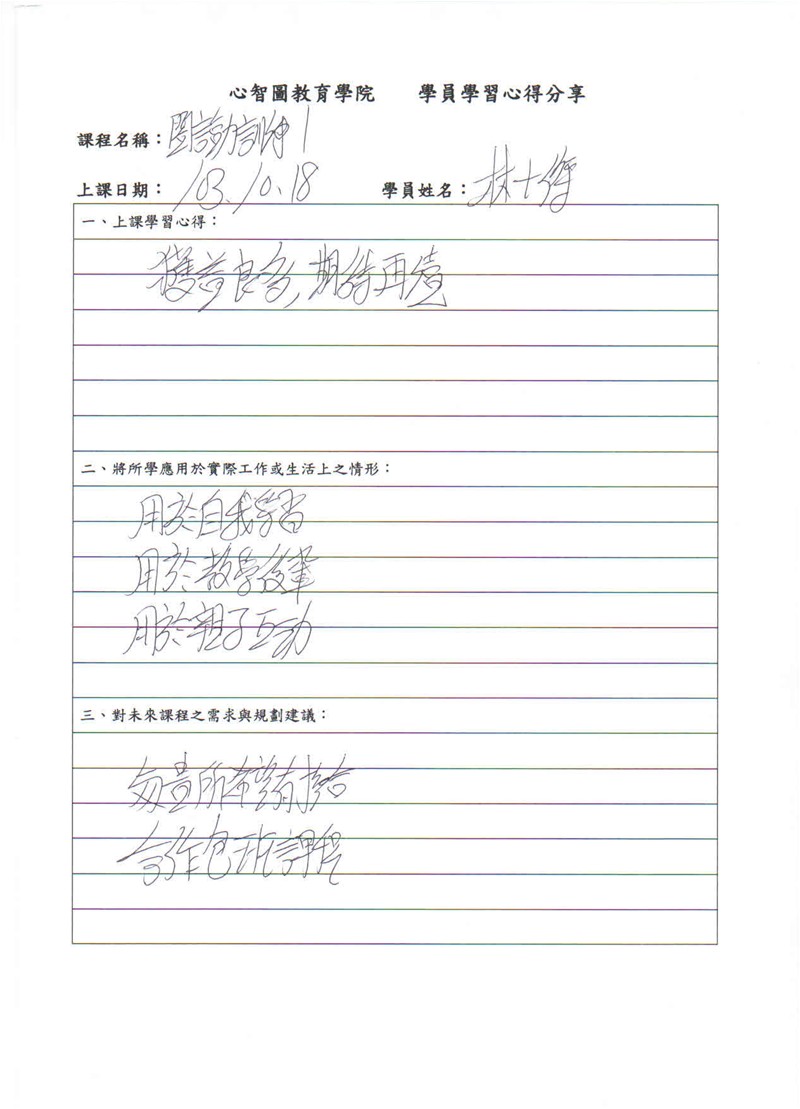 心智圖教育學院 學員學習心得分享
課程名稱：
上課日期：103.10.18 學員姓名：林士
一、上課學習心得：
獲益良多，期待再續
二、將所學應用於實際工作或生活上之情形：
用於自我學習
用於教學後輩
用於親子互動
三、對未來課程之需求與規劃建議：
所希望有
合作包班課程